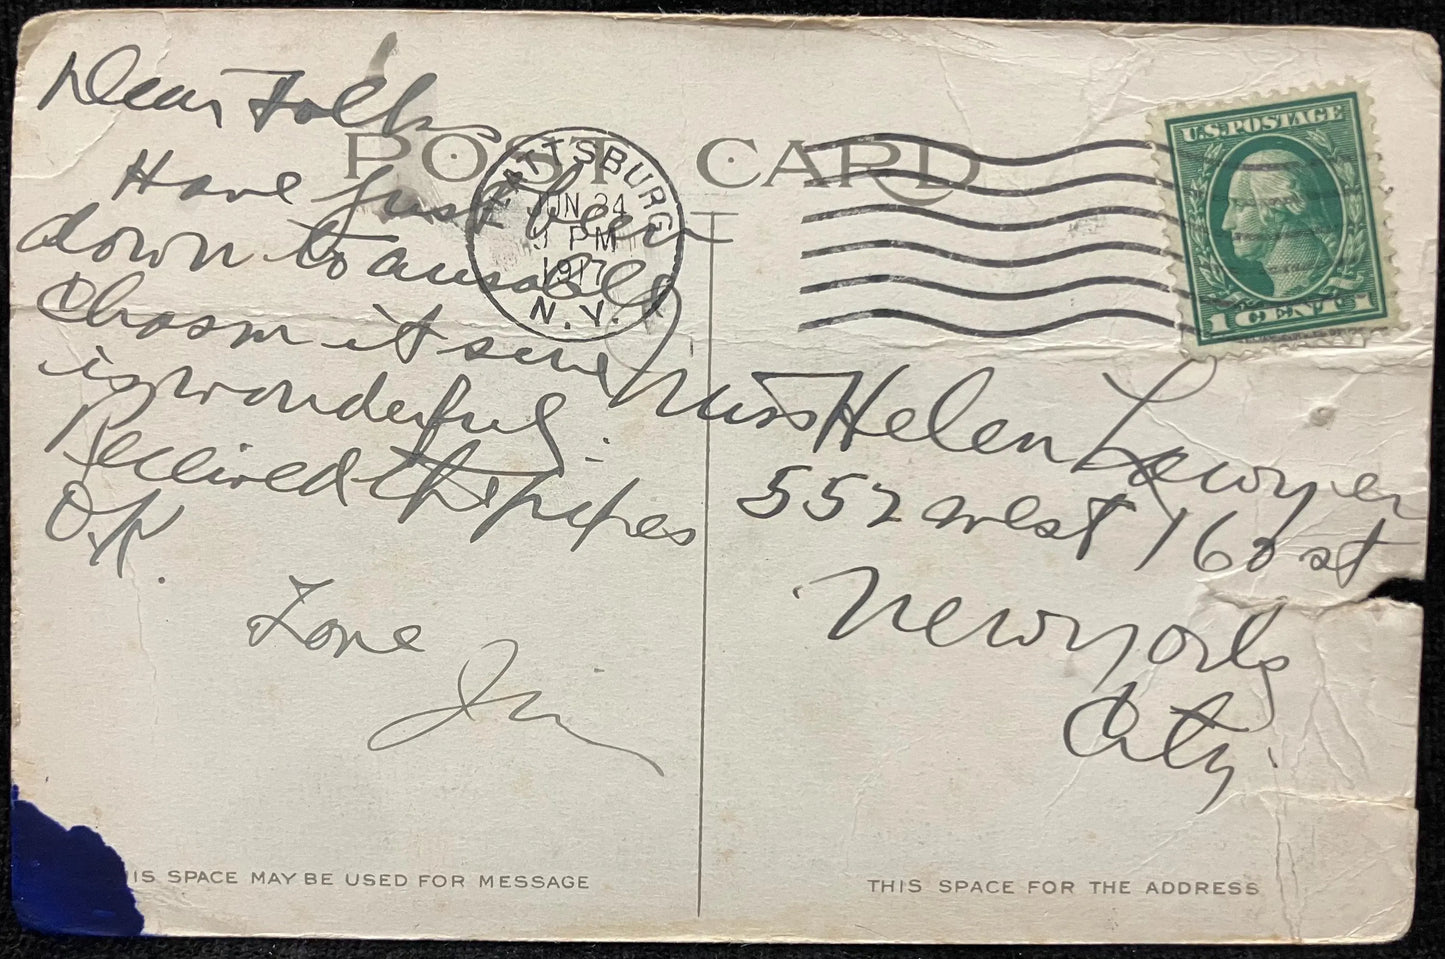 Dear Folks
POST CARD
Have just been
down to ausable
Chasm it sure
is wonderful.
Received the pipes
O.K.
Love
Jim
PLATTSBURG
JUN 24
PM
1917
N.Y.
U.S.POSTAGE
1 CENT 1
Miss Helen Lawyer
552 west 160 st
New york
City.
THIS SPACE MAY BE USED FOR MESSAGE
THIS SPACE FOR THE ADDRESS